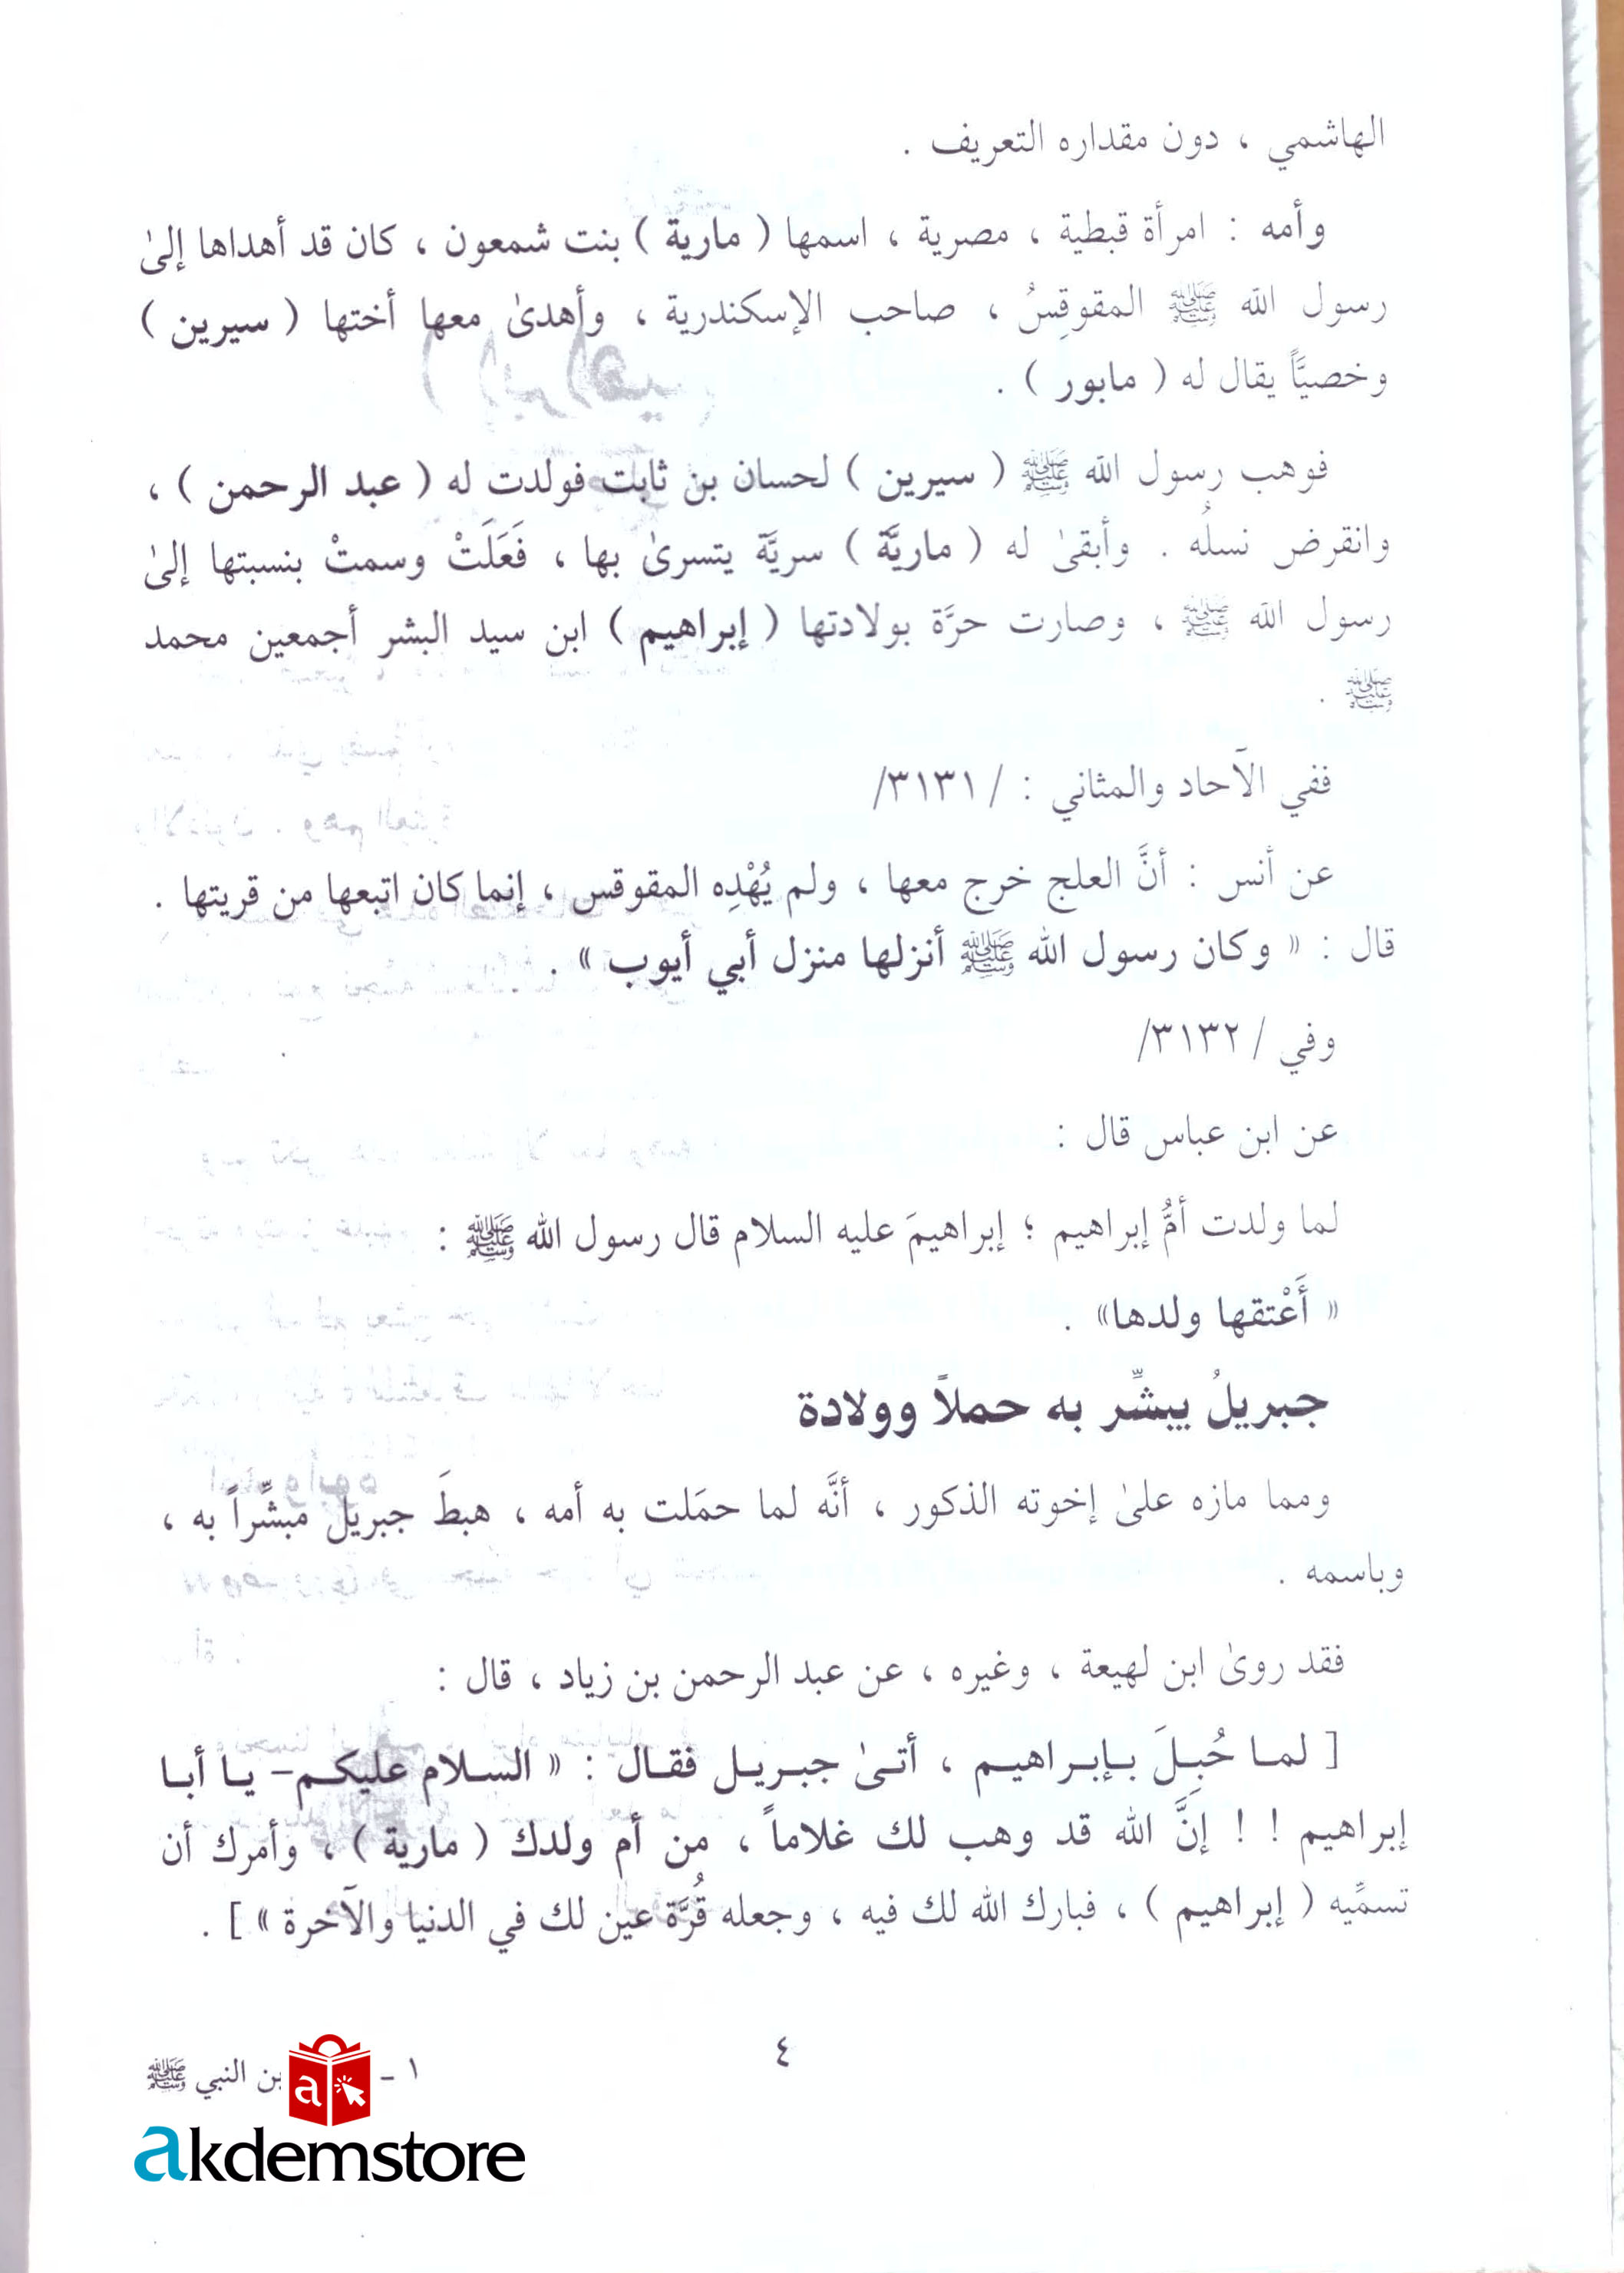 الهاشمي ، دون مقداره التعريف .
وأمه : امرأة قبطية ، مصرية ، اسمها ( مارية ) بنت شمعون ، كان قد أهداها إلىٰ
رسول الله ﷺ المقوقِسُ ، صاحب الإسكندرية ، وأهدىٰ معها أختها ( سيرين )
وخصيَّاً يقال له ( مابور ) .
فوهب رسول الله ﷺ ( سيرين ) لحسان بن ثابت فولدت له ( عبد الرحمن ) ،
وانقرض نسلُه . وأبقىٰ له ( ماريَّة ) سريَّة يتسرىٰ بها ، فَعَلَتْ وسمتْ بنسبتها إلىٰ
رسول الله ﷺ ، وصارت حرَّة بولادتها ( إبراهيم ) ابن سيد البشر أجمعين محمد
ﷺ .
ففي الآحاد والمثاني : / ٣١٣١/
عن أنس : أنَّ العلج خرج معها ، ولم يُهْدِه المقوقس ، إنما كان اتبعها من قريتها .
قال : « وكان رسول الله ﷺ أنزلها منزل أبي أيوب » .
وفي / ٣١٣٢/
عن ابن عباس قال :
لما ولدت أمُّ إبراهيم ؛ إبراهيمَ عليه السلام قال رسول الله ﷺ :
« أَعْتقها ولدها» .
جبريلُ يبشِّر به حملاً وولادة
ومما مازه علىٰ إخوته الذكور ، أنَّه لما حمَلت به أمه ، هبطَ جبريل مبشِّراً به ،
وباسمه .
فقد روىٰ ابن لهيعة ، وغيره ، عن عبد الرحمن بن زياد ، قال :
[ لما حُبِلَ بإبراهيم ، أتىٰ جبريل فقال : « السلام عليكم- يا أبا
إبراهيم ! ! إنَّ الله قد وهب لك غلاماً ، من أم ولدك ( مارية ) ، وأمرك أن
تسمِّيه ( إبراهيم ) ، فبارك الله لك فيه ، وجعله قُرَّة عين لك في الدنيا والآخرة » ] .
٤
١ - بن النبي ﷺ
a
akdemstore